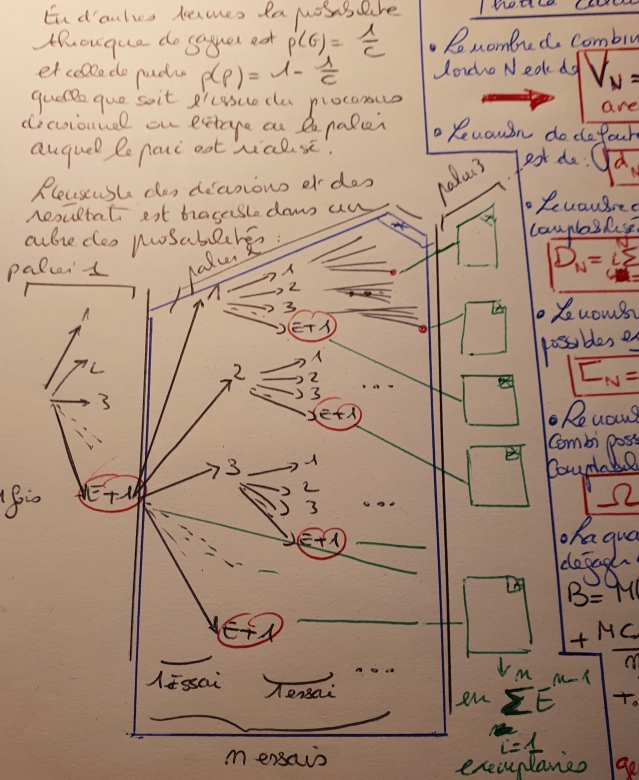 En d'autres termes la probabilité
théorique de gagner est p(G) = 1/C
et celle de perdre p(P) = 1 - 1/C
quelle que soit l'issue du processus
décisionnel ou l'étape ou le palier
auquel le pari est réalisé.
L'ensemble des décisions et des
résultats est traçable dans un
arbre des probabilités :
palier 1
palier 2
palier 3
1
2
3
E+1
fois
1
1
2
3
E+1
2
1
2
3
E+1
...
3
1
2
3
E+1
...
E+1
1 Essai
1 essai
...
n essais
en Σ E^n-1
n
i=1
exemplaires
• Le nombre de combin
l'ordre N est de
V_N =
• Le nombr de
est de :
d_N
• Le nombre
D_N = Σ
• Le nombr
possibles es
C_N =
• Le nom
combi poss
comptabl
Ω
• La qua
dégager
B =
+ MC
n
+